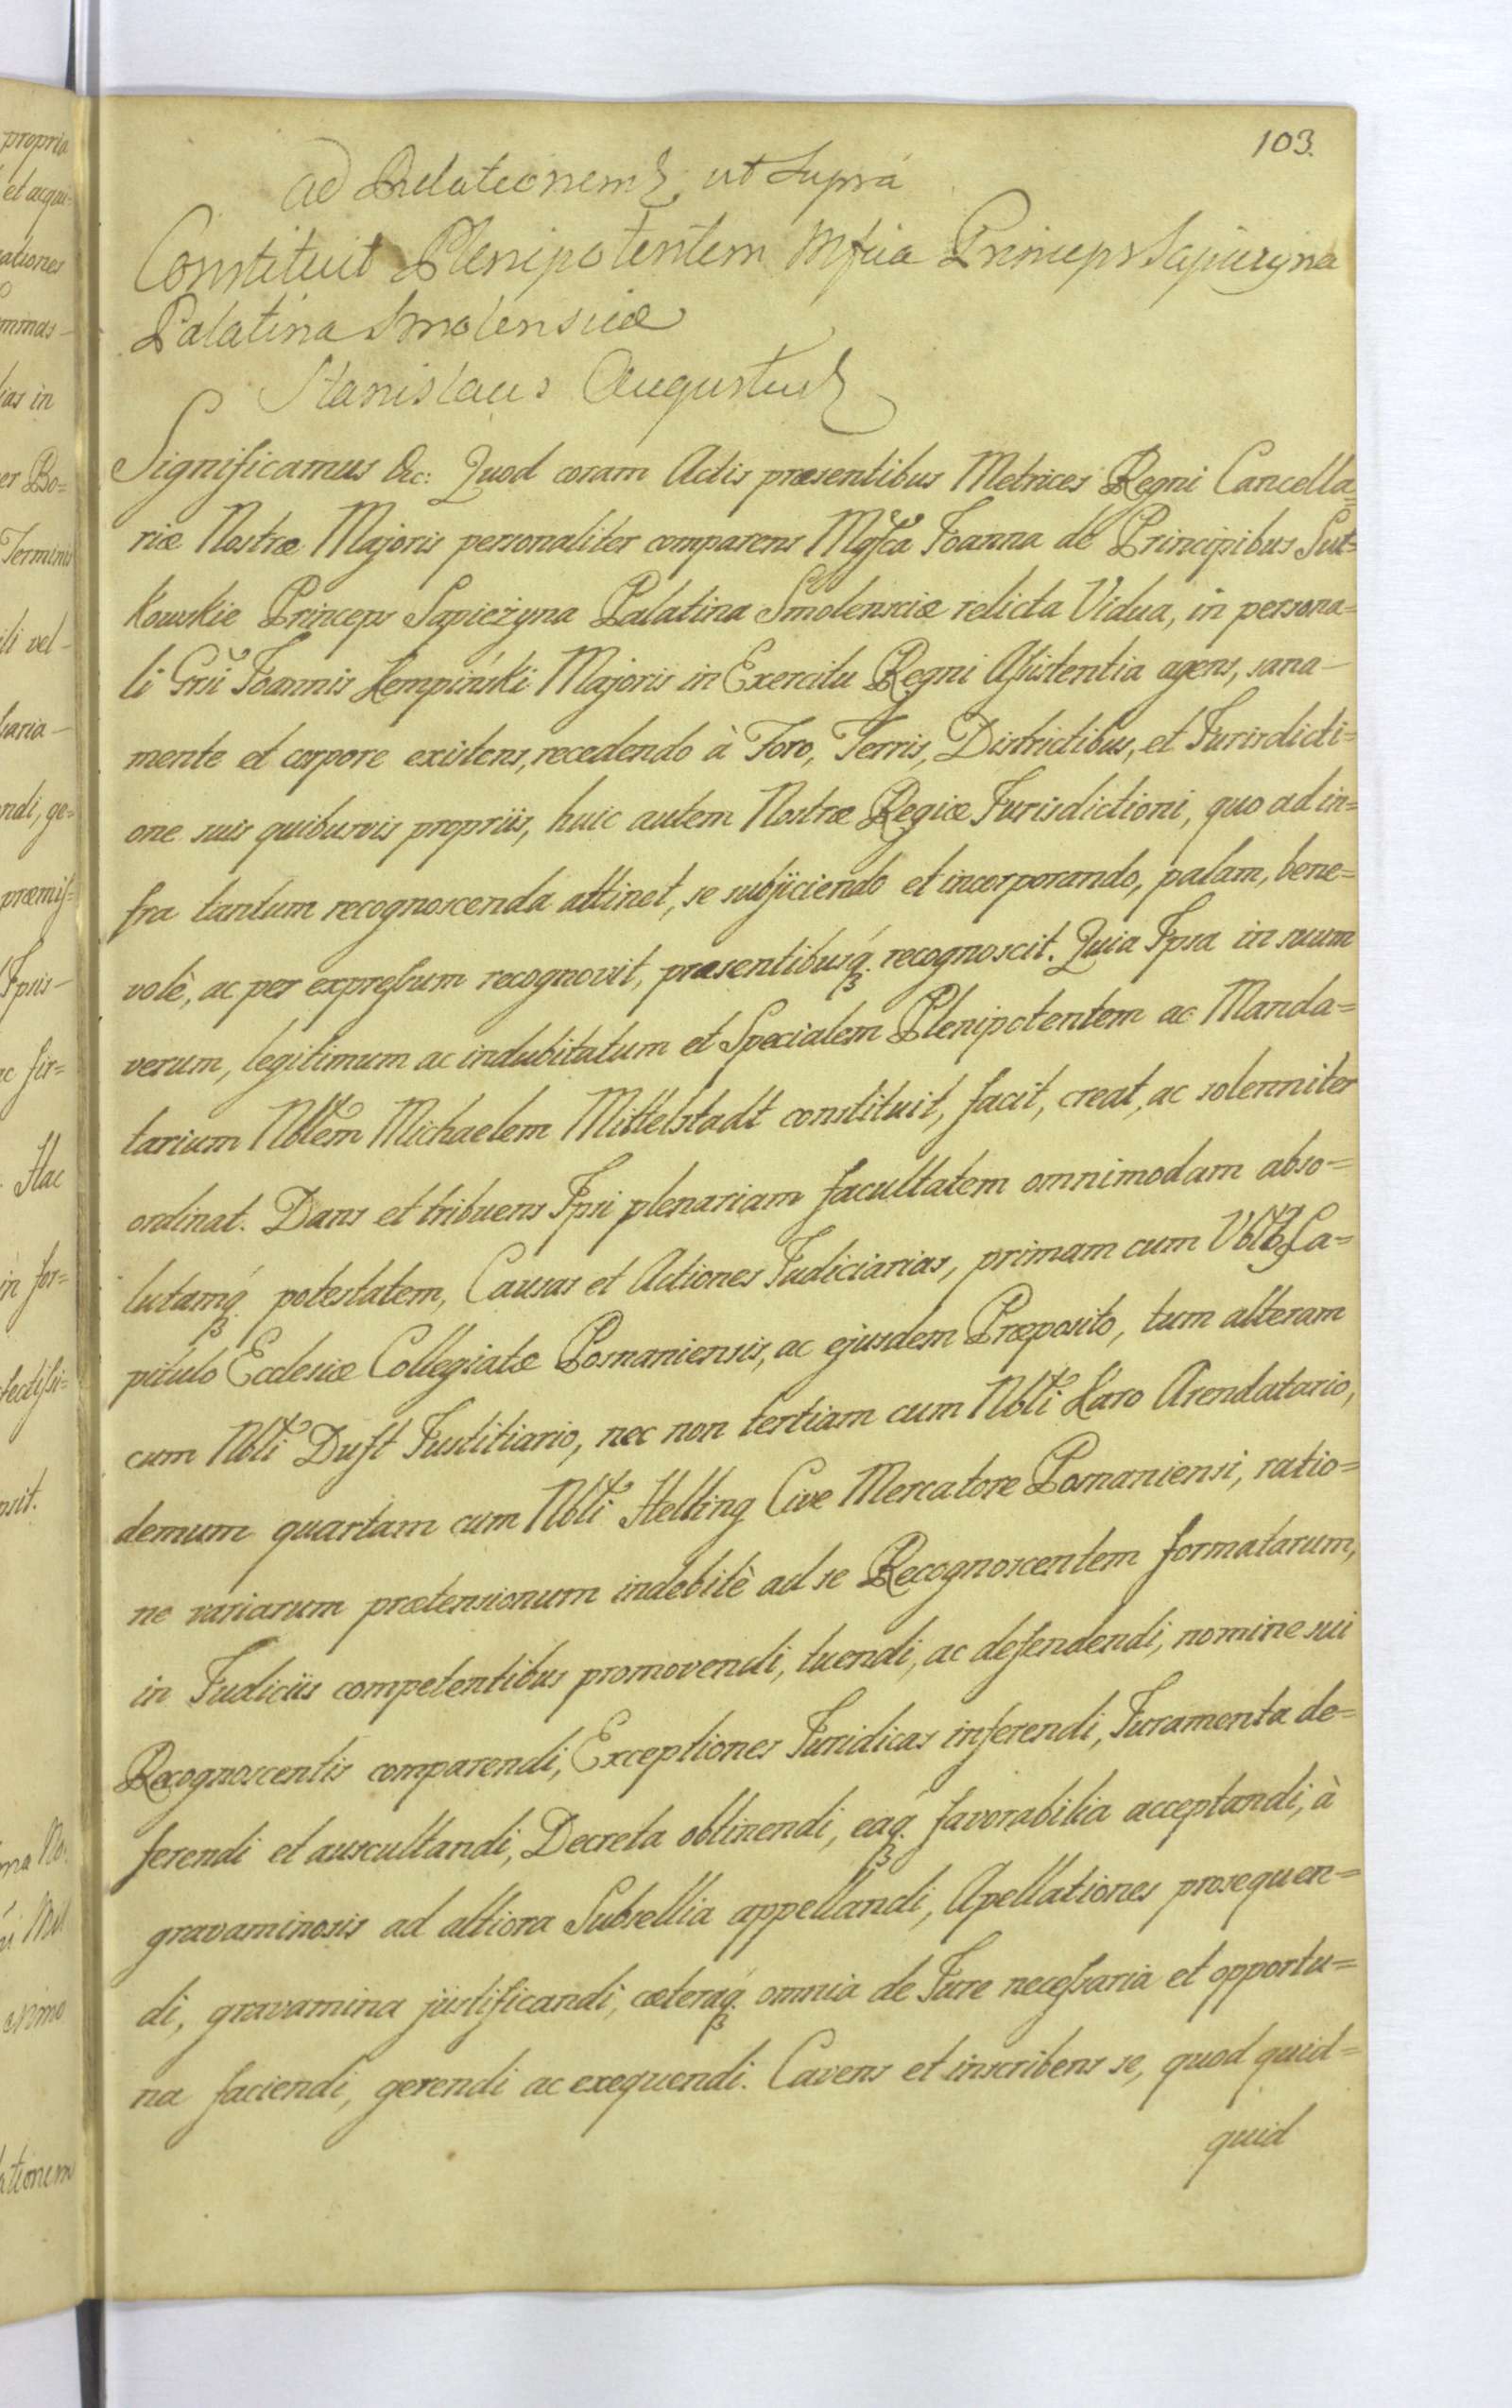 103.
ad Relationem ut supra
Constituit Plenipotentem Mfica Princeps Sapiezyna
Palatina Smolensciæ
Stanislaus Augustus
Significamus &c: Quod coram Actis præsentibus Metrices Regni Cancella=
riæ Nostræ Majoris personaliter comparens Mgfca Joanna de Principibus Suł=
kowskie Princeps Sapieżyna Palatina Smolensciæ relicta Vidua, in persona=
li Grsi Joannis Kempiński Majoris in Exercitu Regni Assistentia agens, sana
mente et corpore existens, recedendo à Foro, Terris, Districtibus, et Jurisdicti=
one suis quibusvis propriis, huic autem Nostræ Regiæ Jurisdictioni, quo ad in=
fra tantum recognoscenda attinet, se subjiciendo et incorporando, palam, bene=
volè, ac per expressum recognovit, præsentibusq́ recognoscit. Quia Ipsa in suum
verum, legitimum ac indubitatum et Specialem Plenipotentem ac Manda=
tarium Nbltem Michaelem Mittelstadt constituit, facit, creat, ac solenniter
ordinat. Dans et tribuens Ipsi plenariam facultatem omnimodam abso=
lutamq́ potestatem, Causas et Actiones Judiciarias, primam cum Vbltb Ca=
pitulo Ecclesiæ Collegiatæ Posnaniensis, ac ejusdem Præposito, tum alteram
cum Nblti Duft Justitiario, nec non tertiam cum Nblti Karo Arendatario,
demum quartam cum Nblti Helling Cive Mercatore Posnaniensi, ratio=
ne variarum prætensionum indebitè ad se Recognoscentem formatarum,
in Judiciis competentibus promovendi, tuendi, ac defendendi, nomine sui
Recognoscentis comparendi, Exceptiones Juridicas inferendi, Juramenta de=
ferendi et auscultandi, Decreta obtinendi, eaq́ favorabilia acceptandi, à
gravaminosis ad altiora Subsellia appellandi, Apellationes prosequen=
di, gravamina justificandi, cæteraq́ omnia de Jure necessaria et opportu=
na faciendi, gerendi ac exequendi. Cavens et inscribens se, quod quid=
quid